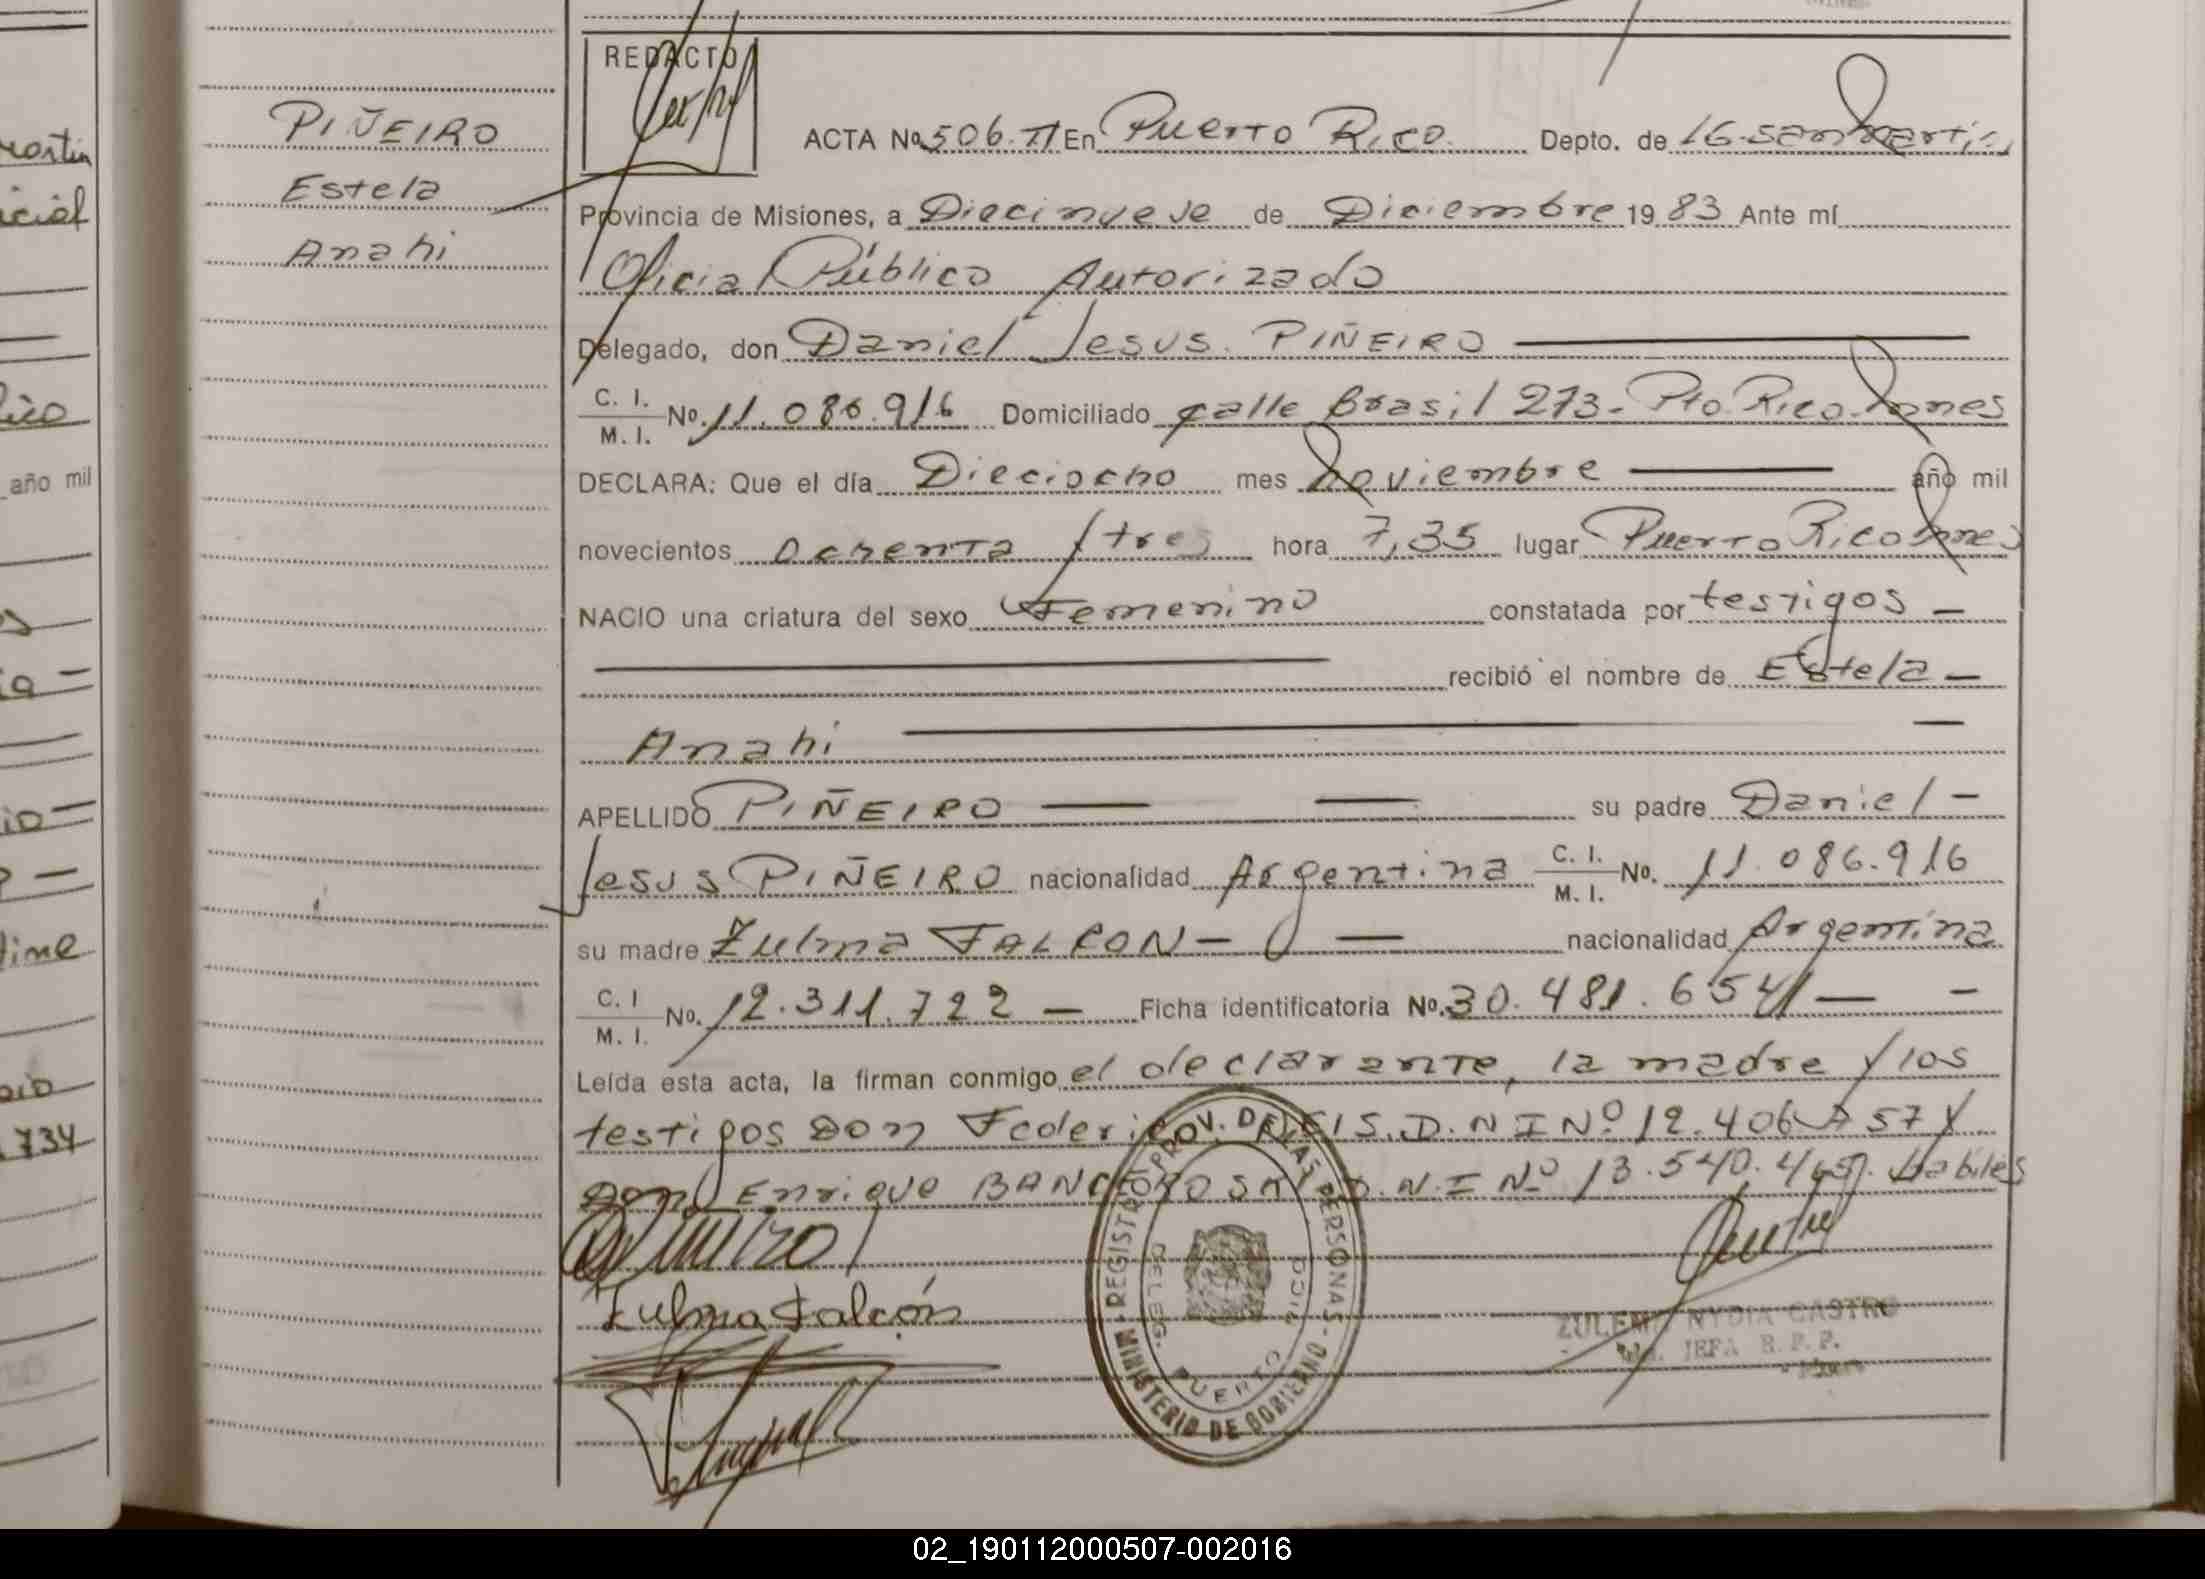 REDACTO
PIÑEIRO
Estela
Anahi
ACTA No. 506. TI En Puerto Rico. Depto. de LG. San Martin
Provincia de Misiones, a Diecinueve de Diciembre 19 83 Ante mí
Oficial Público Autorizado
Delegado, don Daniel Jesus. PIÑEIRO
C. I. M. I. No. 11.086.916 Domiciliado calle Brasil 273- Pto. Rico. Mnes
DECLARA: Que el día Dieciocho mes Noviembre año mil
novecientos Ochenta y tres hora 7,35 lugar Puerto Rico Mnes
NACIO una criatura del sexo Femenino constatada por testigos
recibió el nombre de Estela
Anahi
APELLIDO PIÑEIRO su padre Daniel
Jesus PIÑEIRO nacionalidad Argentina C. I. M. I. No. 11.086.916
su madre Zulma FALCON nacionalidad Argentina
C. I M. I. No. 12.311.722 Ficha identificatoria No. 30.481.654
Leída esta acta, la firman conmigo el declarante, la madre y los
testigos Don Federico D.N I Nº 12.406 57 y
Don Enrique D.N.I Nº 13.540. habiles
Zulma Falcón
REGISTRO PROV. DE LAS PERSONAS - MINISTERIO DE GOBIERNO
DELEG. PUERTO RICO
ZULEMA NYDIA CASTRO
JEFA R.P.P.
año mil
734
02_190112000507-002016